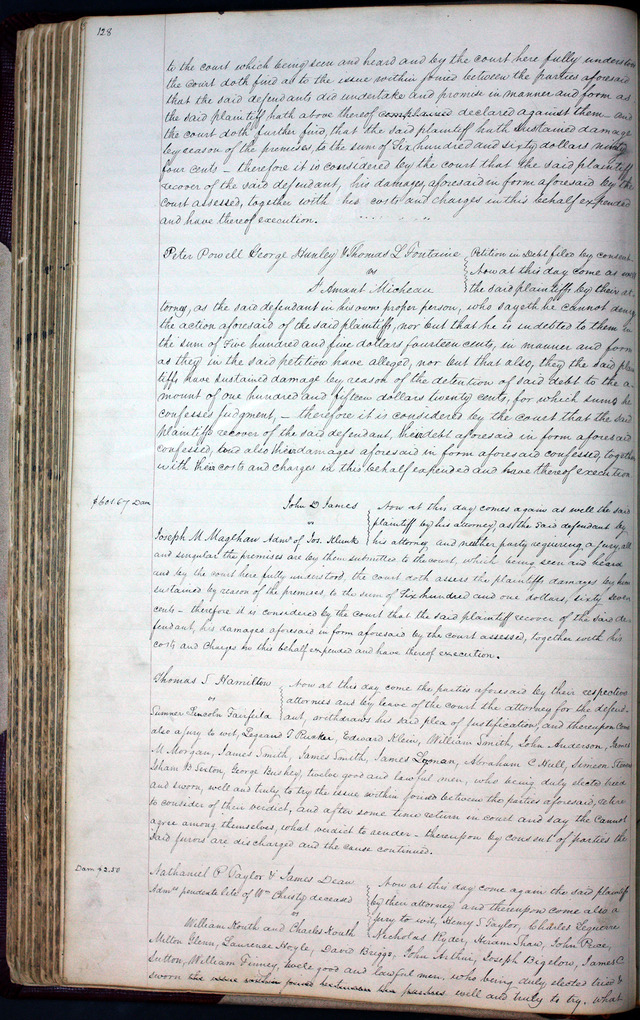 128
to the court which being seen and heard and by the court here fully understood
the court doth find as to the issue within joined between the parties aforesaid
that the said defendants did undertake and promise in manner and form as
the said plaintiff hath above thereof complained declared against them – and
the court doth further find, that the said plaintiff hath sustained damage
by reason of the premises, to the sum of Six hundred and sixty dollars ninety
four cents – therefore it is considered by the court that the said plaintiff
recover of the said defendant, his damages aforesaid in form aforesaid by the
court assessed, together with his costs and charges in this behalf expended
and have thereof execution.
Peter Powell George Hunley & Thomas L Fontaine
vs
St Amant Micheau
Petition in Debt filed by consent
Now at this day come as well
the said plaintiffs by their at
torney, as the said defendant in his own proper person, who sayeth he cannot deny
the action aforesaid of the said plaintiffs, nor but that he is indebted to them in
the sum of Five hundred and five dollars fourteen cents, in manner and form
as they in the said petition have alleged, nor but that also, they the said plain
tiffs have sustained damage by reason of the detention of said debt to the a
mount of one hundred and fifteen dollars twenty cents, for which sums he
confesses judgment, – therefore it is considered by the court that the said
plaintiffs recover of the said defendant, their debt aforesaid in form aforesaid
confessed, and also their damages aforesaid in form aforesaid confessed, together
with their costs and charges in this behalf expended and have thereof execution
$601.67 Dam
John D James
vs
Joseph M Magehaw Admr of Jos. Klunk
Now at this day comes again as well the said
plaintiff by his attorney, as the said defendant by
his attorney, and neither party requiring a Jury, all
and singular the premises are by them submitted to the court, which being seen and heard
and by the court here fully understood, the court doth assess the plaintiffs damages by him
sustained by reason of the premises, to the sum of Six hundred and one dollars, sixty seven
cents – therefore it is considered by the court that the said plaintiff recover of the said de
fendant, his damages aforesaid in form aforesaid by the court assessed, together with his
costs and charges in this behalf expended and have thereof execution.
Thomas S Hamilton
vs
Sumner Lincoln Fairfield
Now at this day come the parties aforesaid by their respective
attornies and by leave of the court the attorney for the defend-
ant, withdraws his said plea of justification, and thereupon come
also a jury to wit, T Rucker, Edward Klein, William Smith, John Anderson, James
M Morgan, James Smith, James Smith, James Loonan, Abraham C Hull, Simeon
Isham B Sexton, George twelve good and lawful men, who being duly elected tried
and sworn, well and truly to try the issue within joined between the parties aforesaid, retire
to consider of their verdict, and after some time return in court and say the cannot
agree among themselves, what verdict to render – thereupon by consent of parties the
said jurors are discharged and the cause continued.
Dam $2.50
Nathaniel P Taylor & James Dean
Admrs pendente lite of Wm Christy deceased
vs
William Routh and Charles Routh
Now at this day come again the said plaintiffs
by their attorney and thereupon come also a
jury to wit, Henry S Taylor, Charles Leguerre
Nicholas Ryder, Hiram Shaw, John Pease,
Milton Glenn, Lawrence Hogle, David Briggs, John Arthur, Joseph Bigelow, James C
Sutton, William Finney, twelve good and lawful men, who being duly elected tried &
sworn the issue within joined between the parties well and truly to try, what